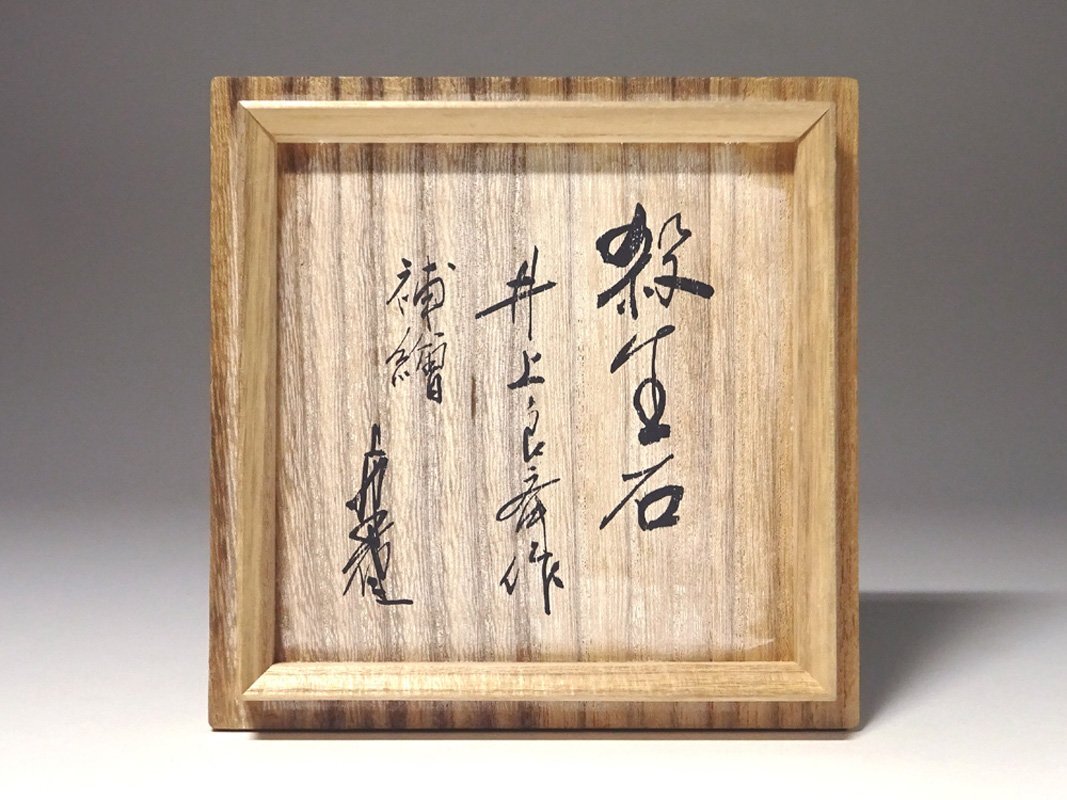 殺生石
井上良斎作
補繪